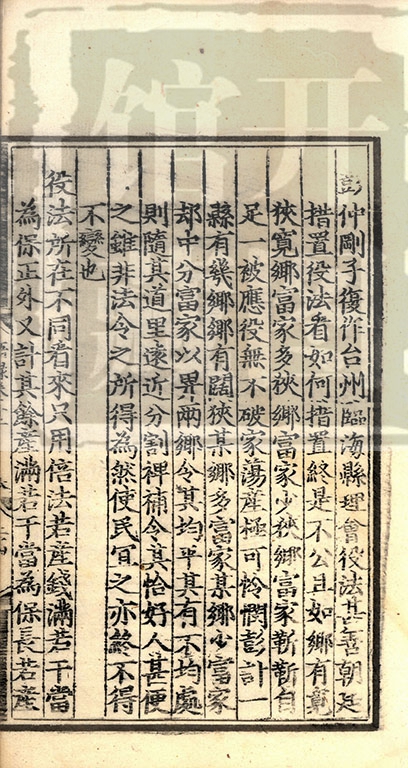 彭仲剛子復作台州臨海縣理會役法甚善朝廷
措置役法看如何措置終是不公且如鄉有寬
狹寬鄉富家多狹鄉富家少狹鄉富家靳靳自
足一被應役無不破家蕩產極可憐憫彭計一
縣有幾鄉鄉有闊狹某鄉多富家某鄉少富家
却中分富家以畀兩鄉令其均平其有不均處
則隨其道里遠近分割裨補令其恰好人甚便
之雖非法令之所得為然使民宜之亦終不得
不變也
役法所在不同看來只用倍法若產錢滿若干當
為保正外又計其餘產滿若干當為保長若產